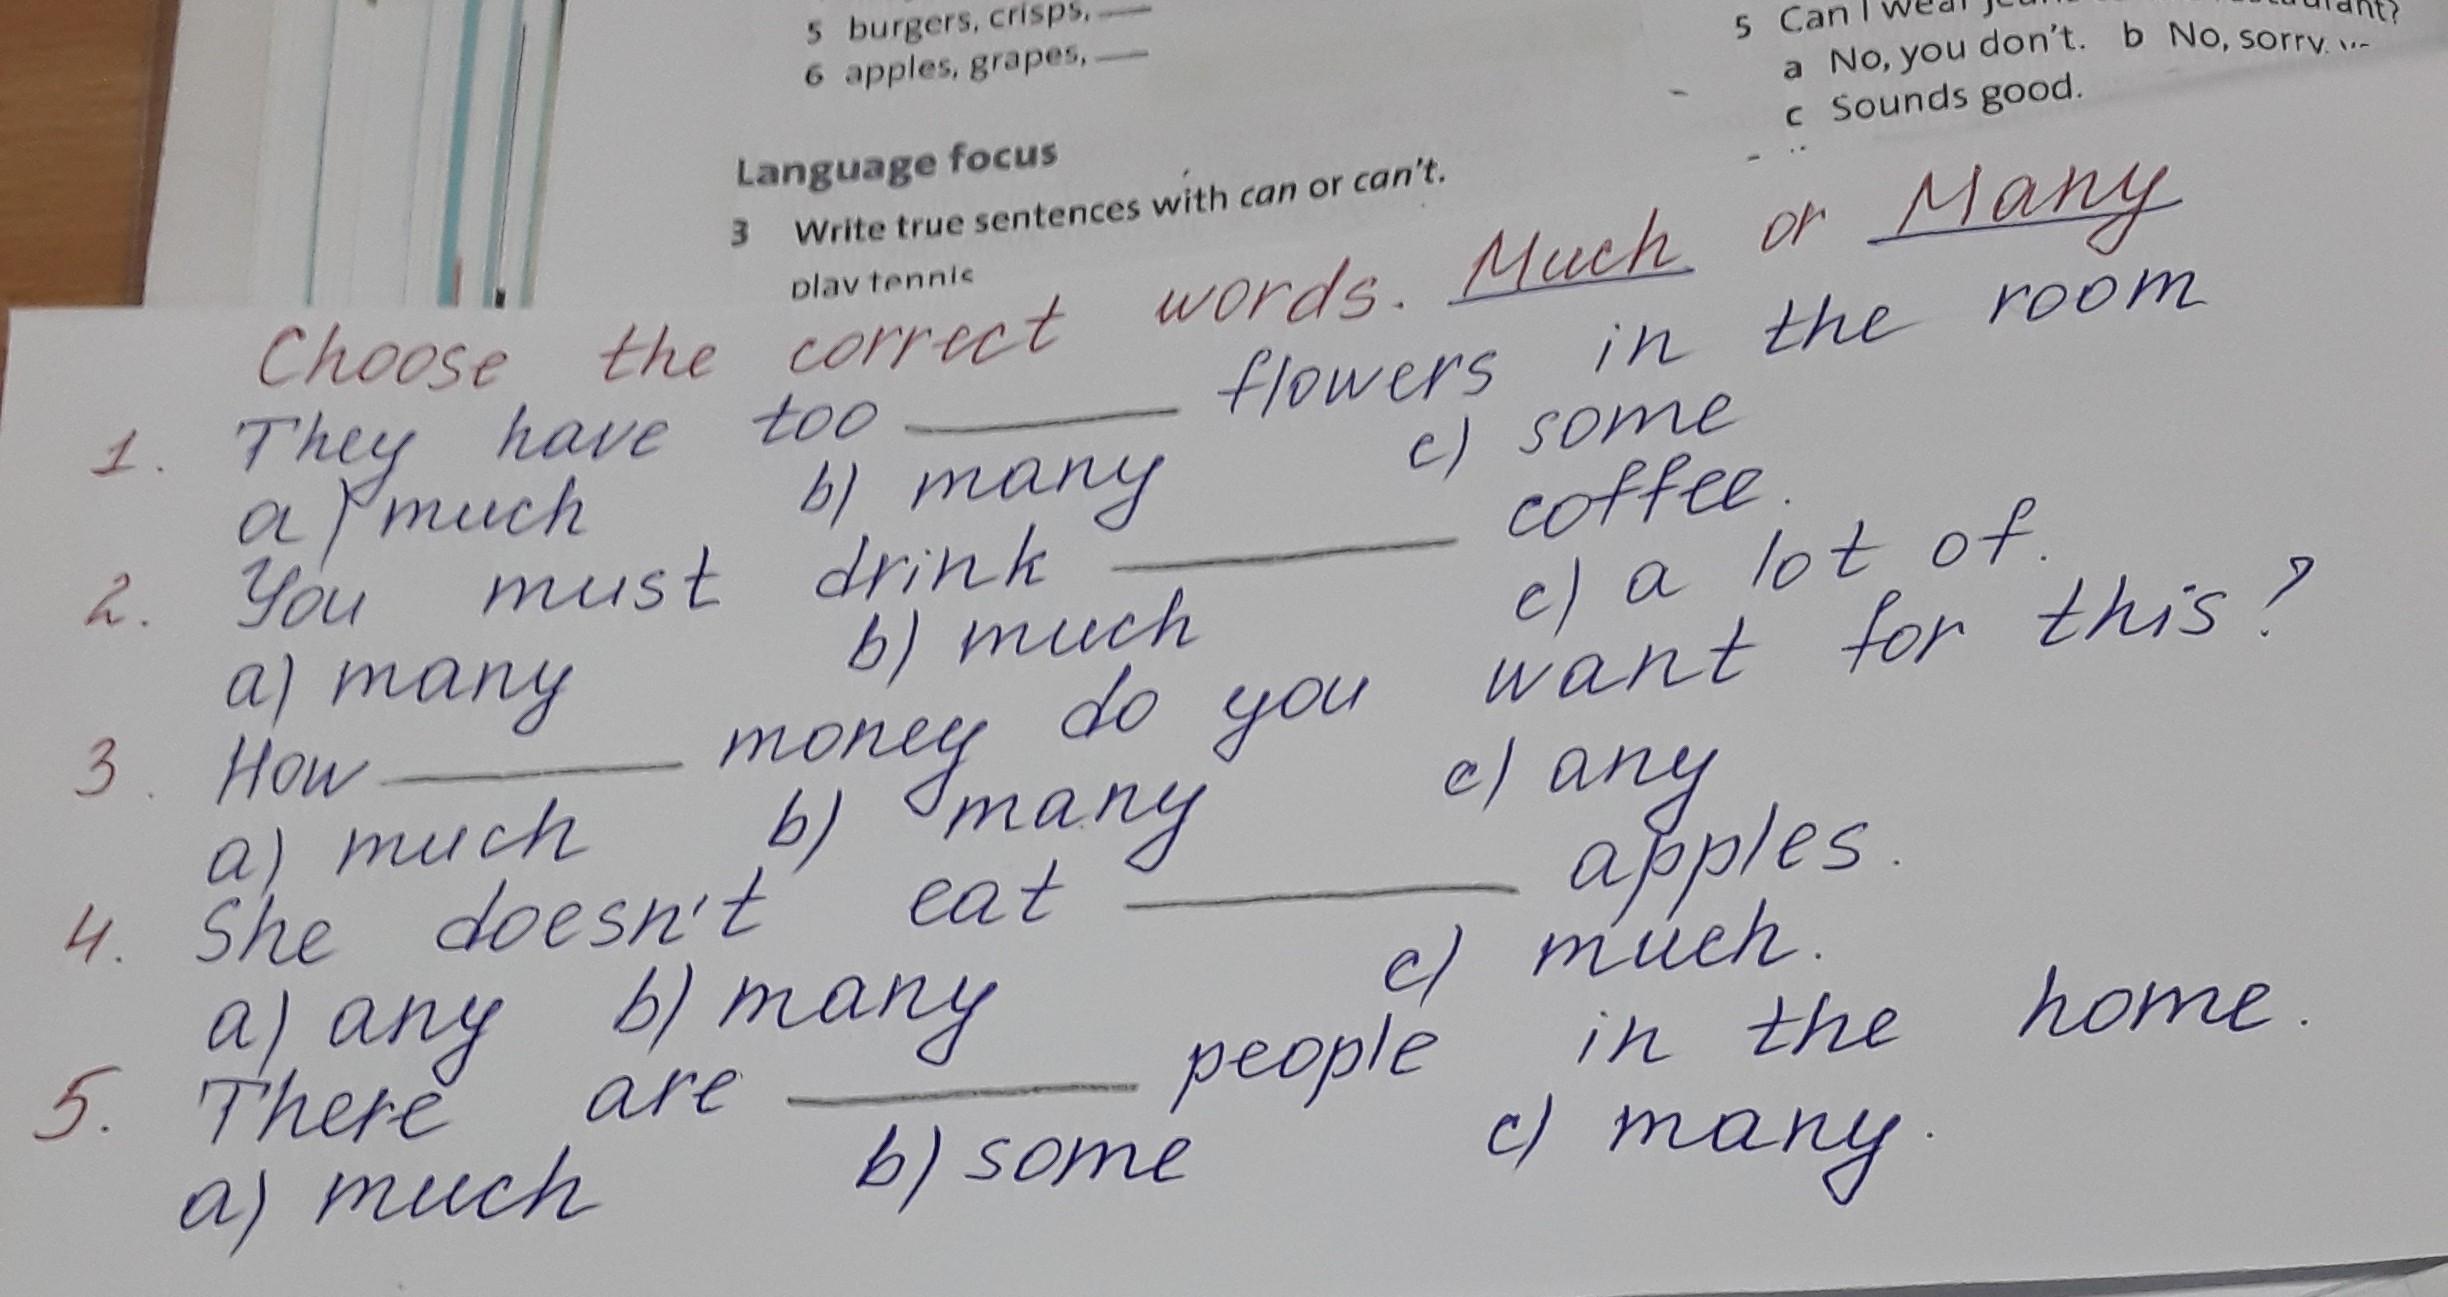 5 burgers, crisps, ___
6 apples, grapes, ___
5 Can I wear
a No, you don't. b No, sorry.
c Sounds good.
Language focus
3 Write true sentences with can or can't.
play tennis
Choose the correct words. Much or Many
1. They have too ______ flowers in the room
a) much b) many c) some
2. You must drink ______ coffee.
a) many b) much c) a lot of.
3. How ______ money do you want for this?
a) much b) many c) any
4. She doesn't eat ______ apples.
a) any b) many c) much.
5. There are ______ people in the home.
a) much b) some c) many.